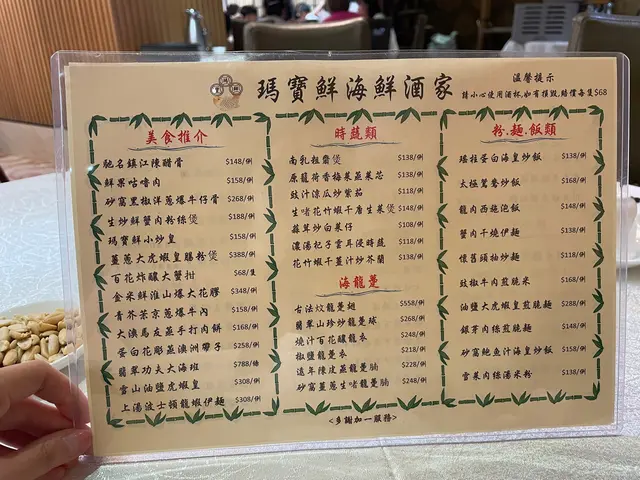 瑪寶鮮海鮮酒家
溫馨提示
請小心使用酒杯.如有損毀.賠償每隻$68
美食推介
馳名鎮江陳醋骨 $148/例
鮮果咕嚕肉 $158/例
砂窩黑椒洋蔥爆牛仔骨 $268/例
生炒鮮蟹肉粉絲煲 $188/例
瑪寶鮮小炒皇 $158/例
薑蔥大虎蝦皇腸粉煲 $388/例
百花炸釀大蟹拑 $68/隻
金米鮮淮山爆大花膠 $348/例
青芥茶京蔥爆牛冧 $158/例
大澳馬友蒸手打肉餅 $168/例
蛋白花彫蒸澳洲帶子 $258/例
翡翠功夫大海班 $788/條
雪山油鹽虎蝦皇 $308/例
上湯波士頓龍蝦伊麵 $308/例
時蔬類
南乳粗齋煲 $138/例
原籠荷香梅菜蒸菜芯 $138/例
豉汁涼瓜炒紫茄 $118/例
生啫花竹蝦干唐生菜煲 $148/例
蒜茸炒白菜仔 $108/例
濃湯杞子雲耳浸時蔬 $118/例
花竹蝦干薑汁炒芥蘭 $138/例
海龍躉
古法炆龍躉翅 $558/例
翡翠山珍炒龍躉球 $268/例
燒汁百花釀龍衣 $248/例
椒鹽龍躉衣 $218/例
遠年陳皮蒸龍躉腩 $228/例
砂窩薑蔥生啫龍躉腩 $248/例
粉.麵.飯類
瑤柱蛋白海皇炒飯 $138/例
太極鴛鴦炒飯 $168/例
龍肉西施泡飯 $148/例
蟹肉干燒伊麵 $138/例
懷舊頭抽炒麵 $118/例
豉椒牛肉煎脆米 $168/例
油鹽大虎蝦皇煎脆麵 $288/例
銀芽肉絲煎脆麵 $148/例
砂窩鮑魚汁海皇炒飯 $158/例
雪菜肉絲湯米粉 $138/例
<多謝加一服務>